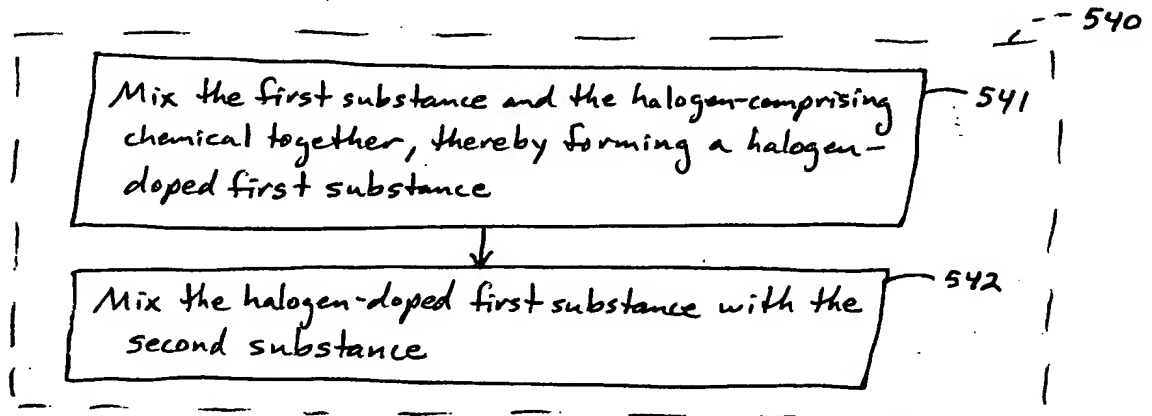 540
Mix the first substance and the halogen-comprising
chemical together, thereby forming a halogen-
doped first substance
541
Mix the halogen-doped first substance with the
second substance
542